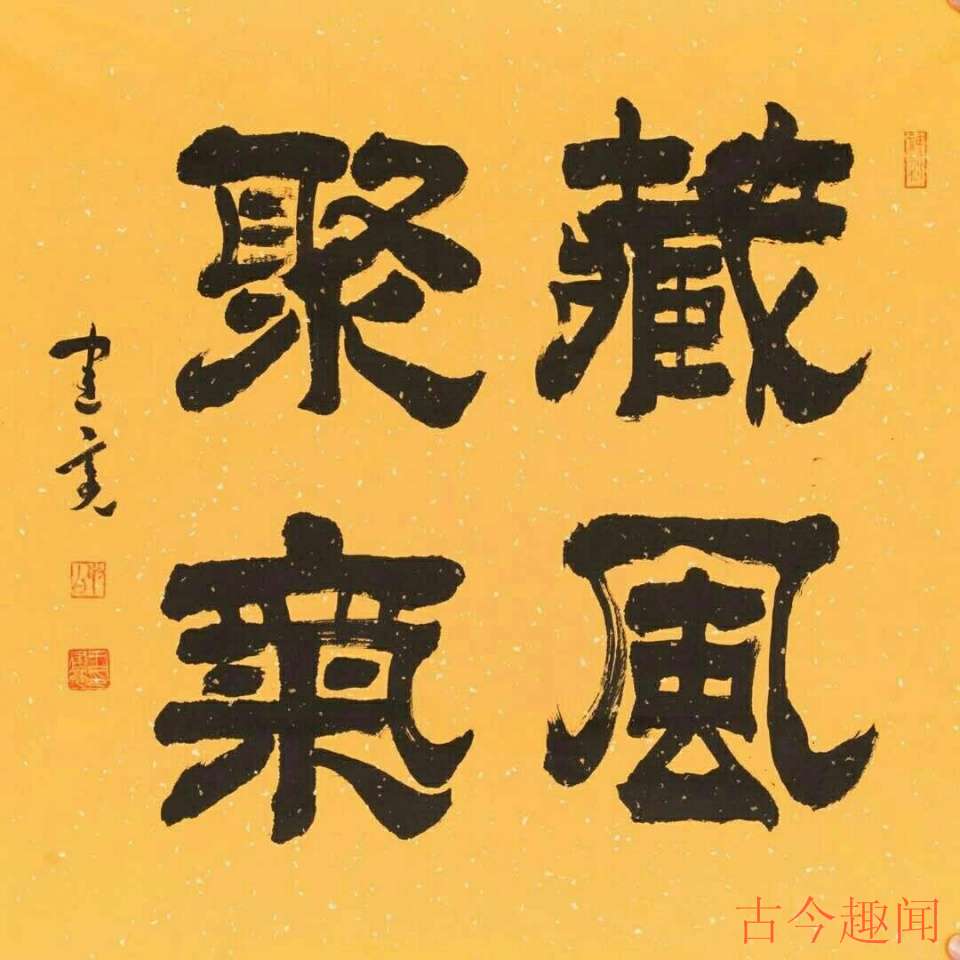 藏風
聚氣
古今趣闻